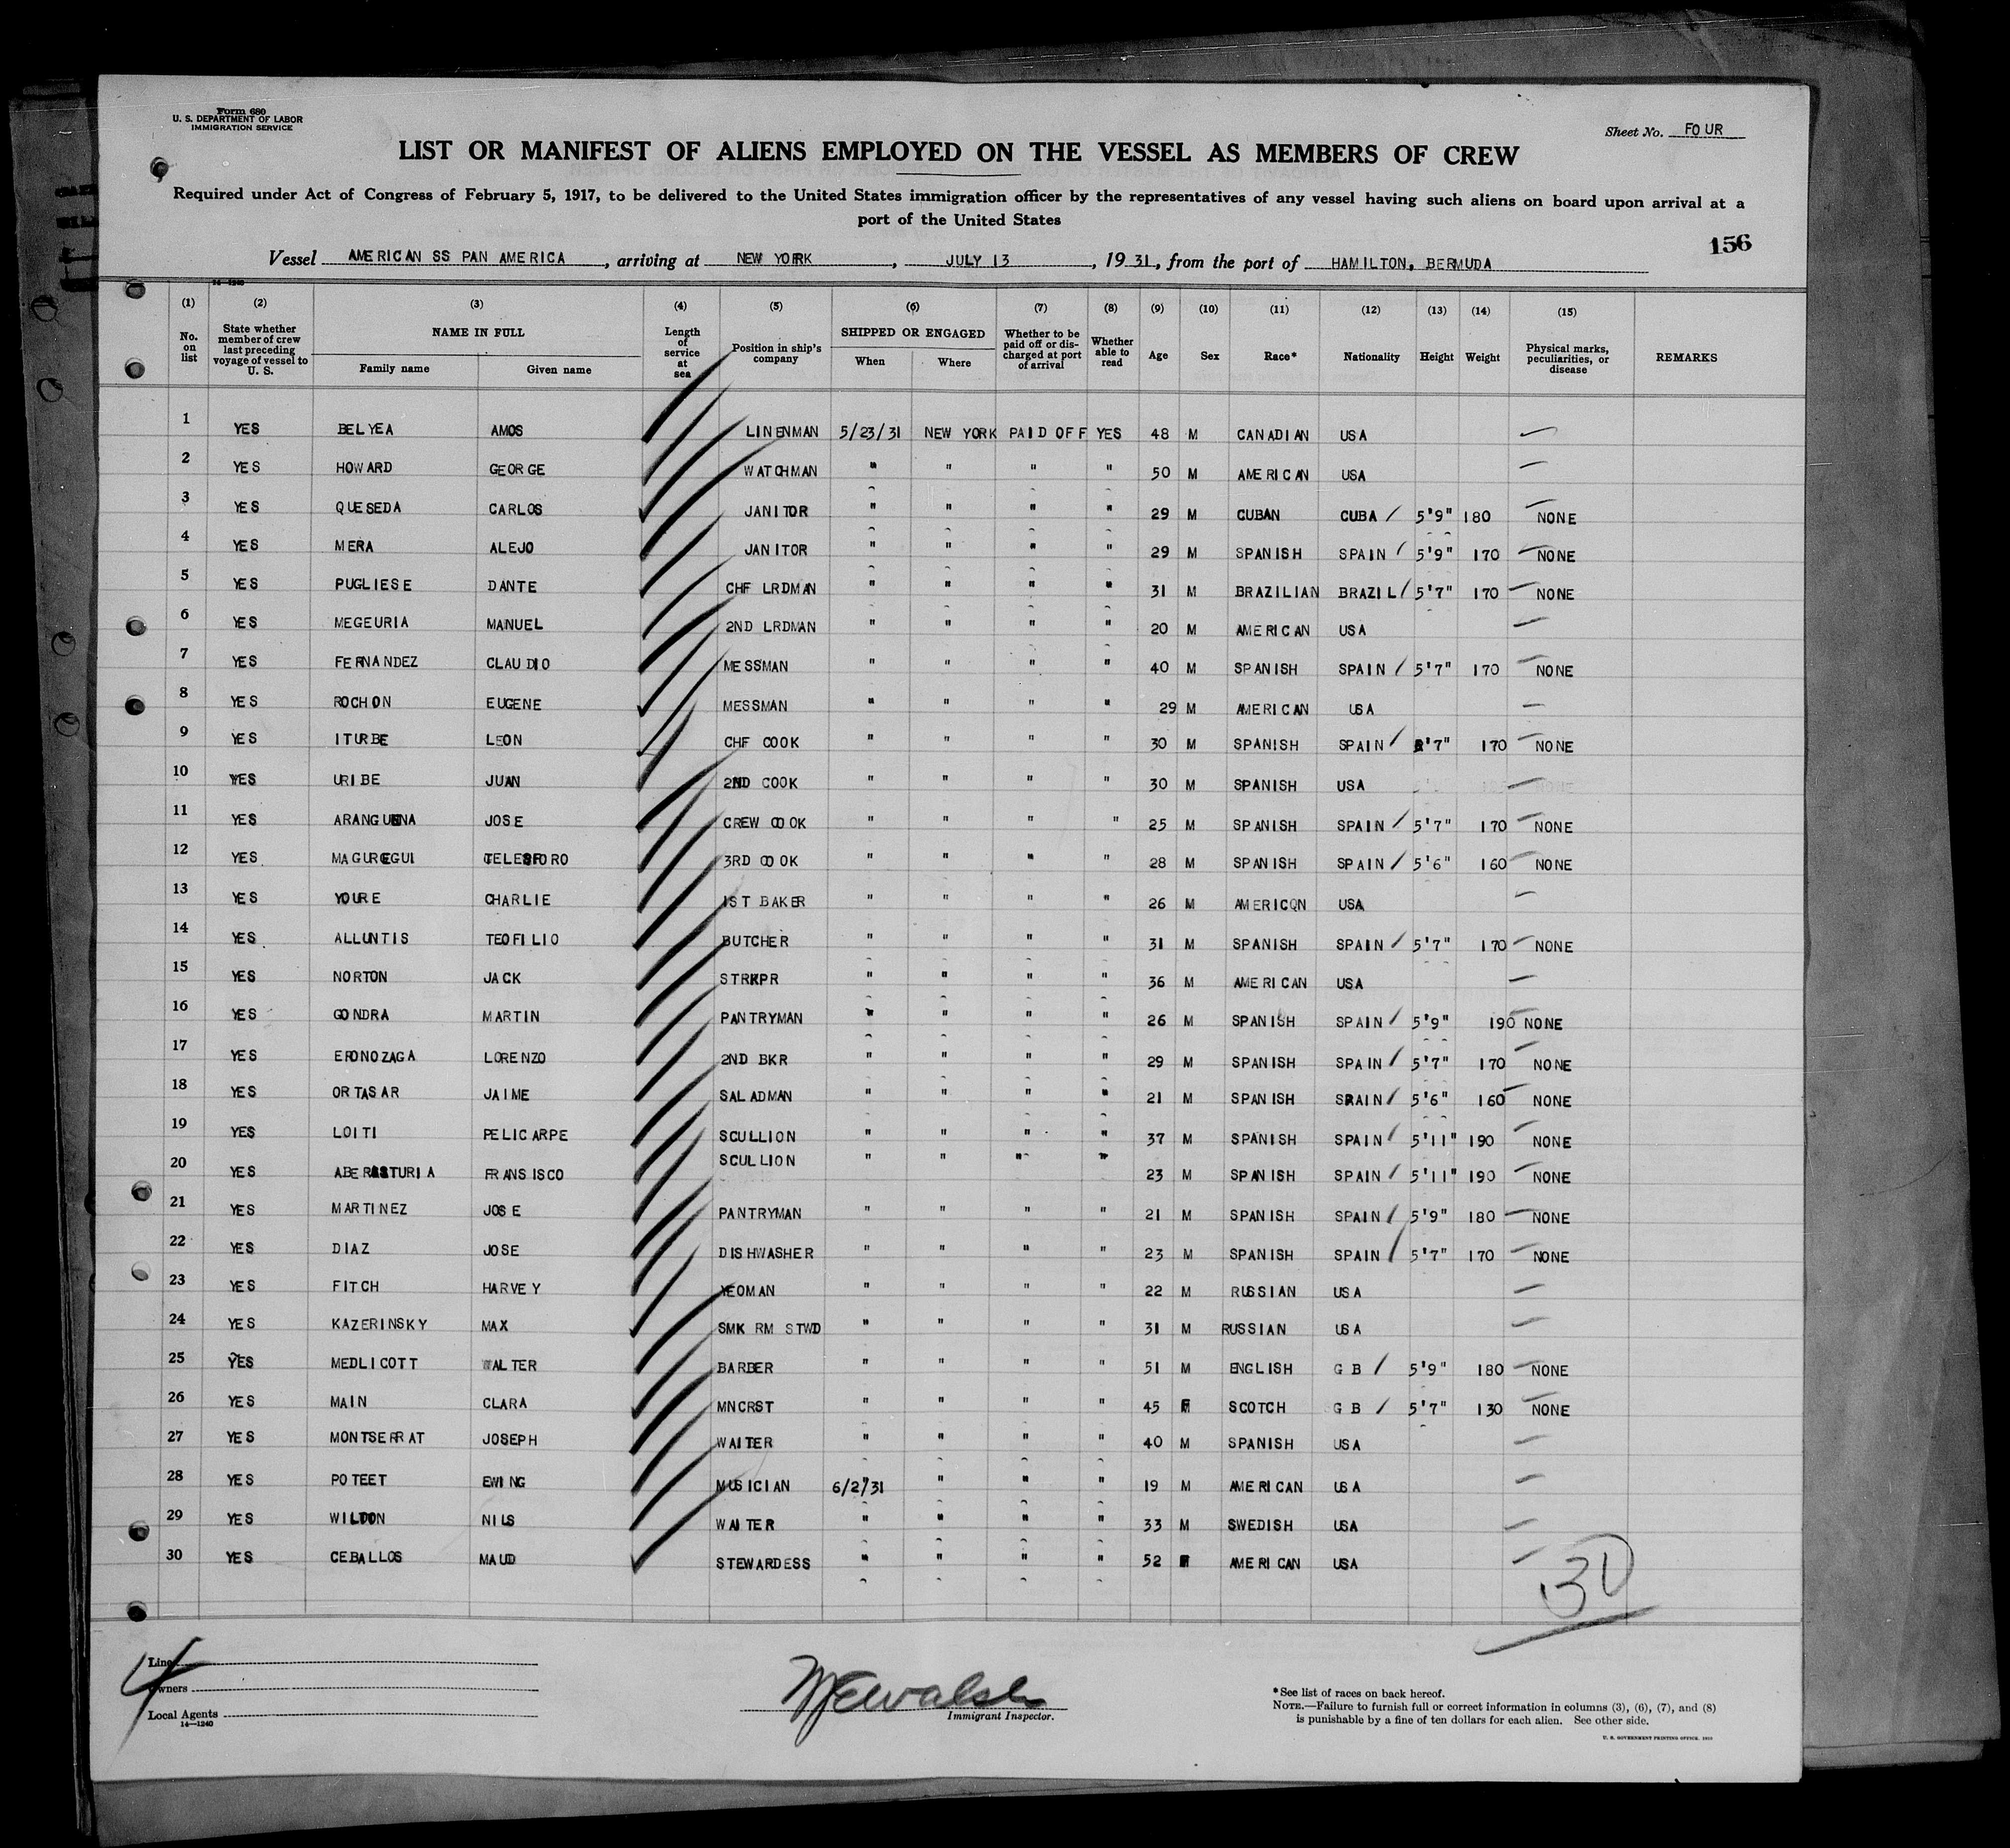 Form 680
U. S. DEPARTMENT OF LABOR
IMMIGRATION SERVICE
Sheet No. FOUR
LIST OR MANIFEST OF ALIENS EMPLOYED ON THE VESSEL AS MEMBERS OF CREW
Required under Act of Congress of February 5, 1917, to be delivered to the United States immigration officer by the representatives of any vessel having such aliens on board upon arrival at a
port of the United States
156
Vessel AMERICAN SS PAN AMERICA, arriving at NEW YORK, JULY 13, 1931, from the port of HAMILTON, BERMUDA
14—1240
(1) (2) (3) (4) (5) (6) (7) (8) (9) (10) (11) (12) (13) (14) (15)
No. on list | State whether member of crew last preceding voyage of vessel to U. S. | NAME IN FULL | Family name | Given name | Length of service at sea | Position in ship's company | SHIPPED OR ENGAGED | When | Where | Whether to be paid off or discharged at port of arrival | Whether able to read | Age | Sex | Race* | Nationality | Height | Weight | Physical marks, peculiarities, or disease | REMARKS
1 YES BELYEA AMOS LINENMAN 5/23/31 NEW YORK PAID OFF YES 48 M CANADIAN USA
2 YES HOWARD GEORGE WATCHMAN " " " " 50 M AMERICAN USA
3 YES QUESEDA CARLOS JANITOR " " " " 29 M CUBAN CUBA / 5'9" 180 NONE
4 YES MERA ALEJO JANITOR " " " " 29 M SPANISH SPAIN / 5'9" 170 NONE
5 YES PUGLIESE DANTE CHF LRDMAN " " " " 31 M BRAZILIAN BRAZIL / 5'7" 170 NONE
6 YES MEGEURIA MANUEL 2ND LRDMAN " " " " 20 M AMERICAN USA
7 YES FERNANDEZ CLAUDIO MESSMAN " " " " 40 M SPANISH SPAIN / 5'7" 170 NONE
8 YES ROCHON EUGENE MESSMAN " " " " 29 M AMERICAN USA
9 YES ITURBE LEON CHF COOK " " " " 30 M SPANISH SPAIN / 5'7" 170 NONE
10 YES URIBE JUAN 2ND COOK " " " " 30 M SPANISH USA
11 YES JOSE CREW COOK " " " " 25 M SPANISH SPAIN / 5'7" 170 NONE
12 YES MAGUREGUI TELESFORO 3RD COOK " " " " 28 M SPANISH SPAIN / 5'6" 160 NONE
13 YES YOURE CHARLIE 1ST BAKER " " " " 26 M AMERICQN USA
14 YES ALLUNTIS TEOFILIO BUTCHER " " " " 31 M SPANISH SPAIN / 5'7" 170 NONE
15 YES NORTON JACK STRKPR " " " " 36 M AMERICAN USA
16 YES GONDRA MARTIN PANTRYMAN " " " " 26 M SPANISH SPAIN / 5'9" 190 NONE
17 YES ERONOZAGA LORENZO 2ND BKR " " " " 29 M SPANISH SPAIN / 5'7" 170 NONE
18 YES ORTASAR JAIME SALADMAN " " " " 21 M SPANISH SPAIN / 5'6" 160 NONE
19 YES LOITI PELICARPE SCULLION " " " " 37 M SPANISH SPAIN / 5'11" 190 NONE
20 YES FRANSISCO SCULLION " " " " 23 M SPANISH SPAIN / 5'11" 190 NONE
21 YES MARTINEZ JOSE PANTRYMAN " " " " 21 M SPANISH SPAIN / 5'9" 180 NONE
22 YES DIAZ JOSE DISHWASHER " " " " 23 M SPANISH SPAIN / 5'7" 170 NONE
23 YES FITCH HARVEY YEOMAN " " " " 22 M RUSSIAN USA
24 YES KAZERINSKY MAX SMK RM STWD " " " " 31 M RUSSIAN USA
25 YES MEDLICOTT WALTER BARBER " " " " 51 M ENGLISH G B / 5'9" 180 NONE
26 YES MAIN CLARA MNCRST " " " " 45 F SCOTCH G B / 5'7" 130 NONE
27 YES MONTSERRAT JOSEPH WAITER " " " " 40 M SPANISH USA
28 YES POTEET EWING MUSICIAN 6/2/31 " " " 19 M AMERICAN USA
29 YES NILS WAITER " " " " 33 M SWEDISH USA
30 YES CEBALLOS MAUD STEWARDESS " " " " 52 F AMERICAN USA
30
4
Line
Owners
Local Agents
14—1240
Walsh
Immigrant Inspector.
*See list of races on back hereof.
NOTE.—Failure to furnish full or correct information in columns (3), (6), (7), and (8)
is punishable by a fine of ten dollars for each alien. See other side.
U. S. GOVERNMENT PRINTING OFFICE